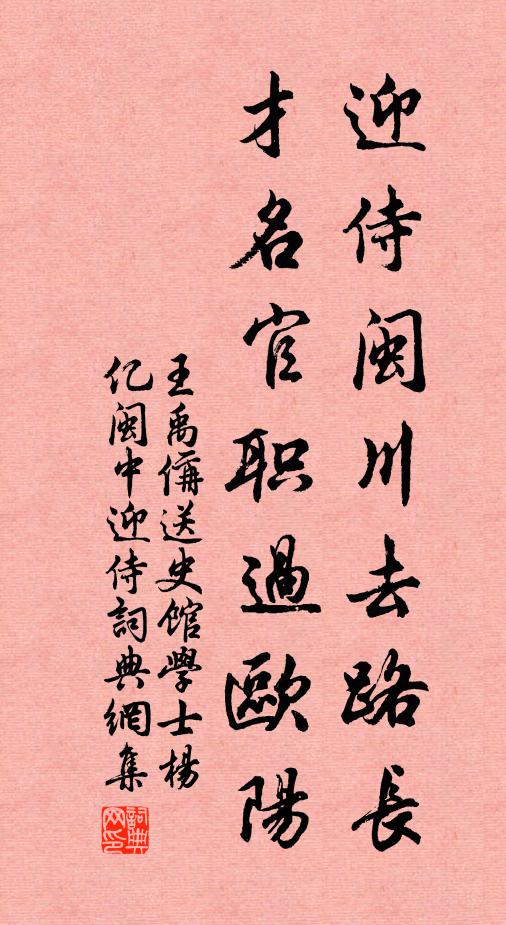 迎侍閩川去路長
才名官职過歐陽
王禹偁送史館學士楊
亿閩中迎侍詞典網集
詞典网印